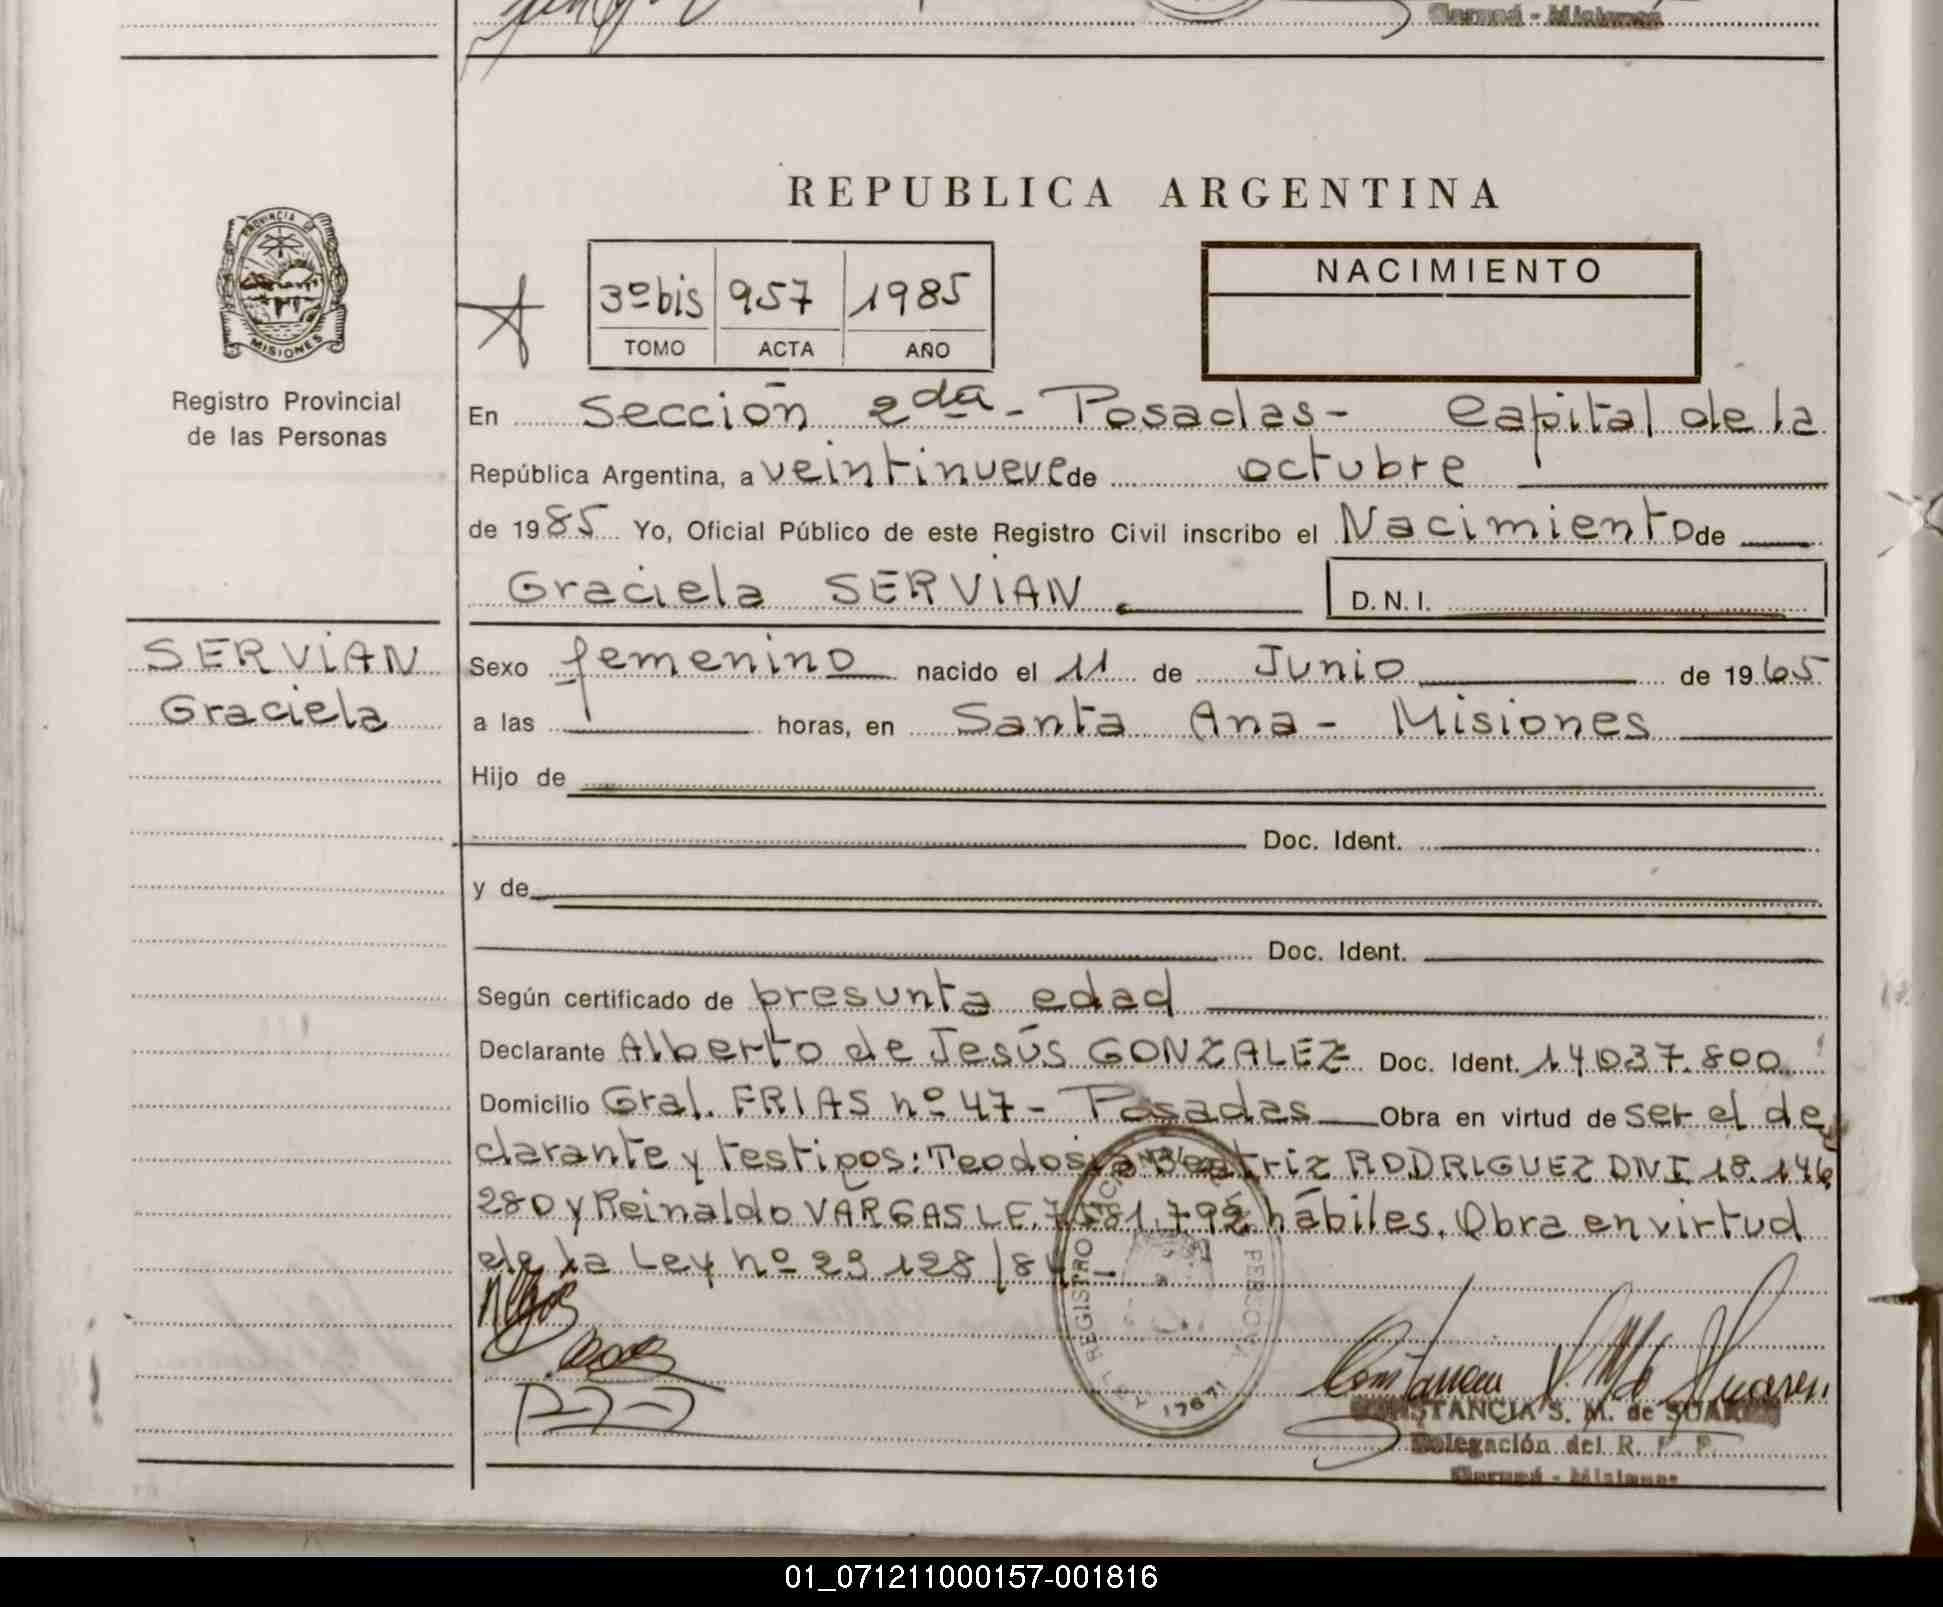 Garupá - Misiones
REPUBLICA ARGENTINA
PROVINCIA DE
MISIONES
Registro Provincial
de las Personas
3º bis 957 1985
TOMO ACTA AÑO
NACIMIENTO
En Sección 2da - Posadas - Capital de la
República Argentina, a veintinueve de octubre
de 1985 Yo, Oficial Público de este Registro Civil inscribo el Nacimiento de
Graciela SERVIAN D.N.I.
SERVIAN
Graciela
Sexo femenino nacido el 11 de Junio de 1965
a las horas, en Santa Ana - Misiones
Hijo de
Doc. Ident.
y de
Doc. Ident.
Según certificado de presunta edad
Declarante Alberto de Jesús GONZALEZ Doc. Ident. 14.037.800
Domicilio Gral. FRIAS nº 47 - Posadas Obra en virtud de ser el de
clarante y testigos: Teodosia Beatriz RODRIGUEZ DNI 18.146
280 y Reinaldo VARGAS L.E. hábiles. Obra en virtud
de la Ley nº 23128/84 -
REGISTRO
CONSTANCIA S. M. de SUAREZ
Delegación del R. P. P.
Garupá - Misiones
01_071211000157-001816